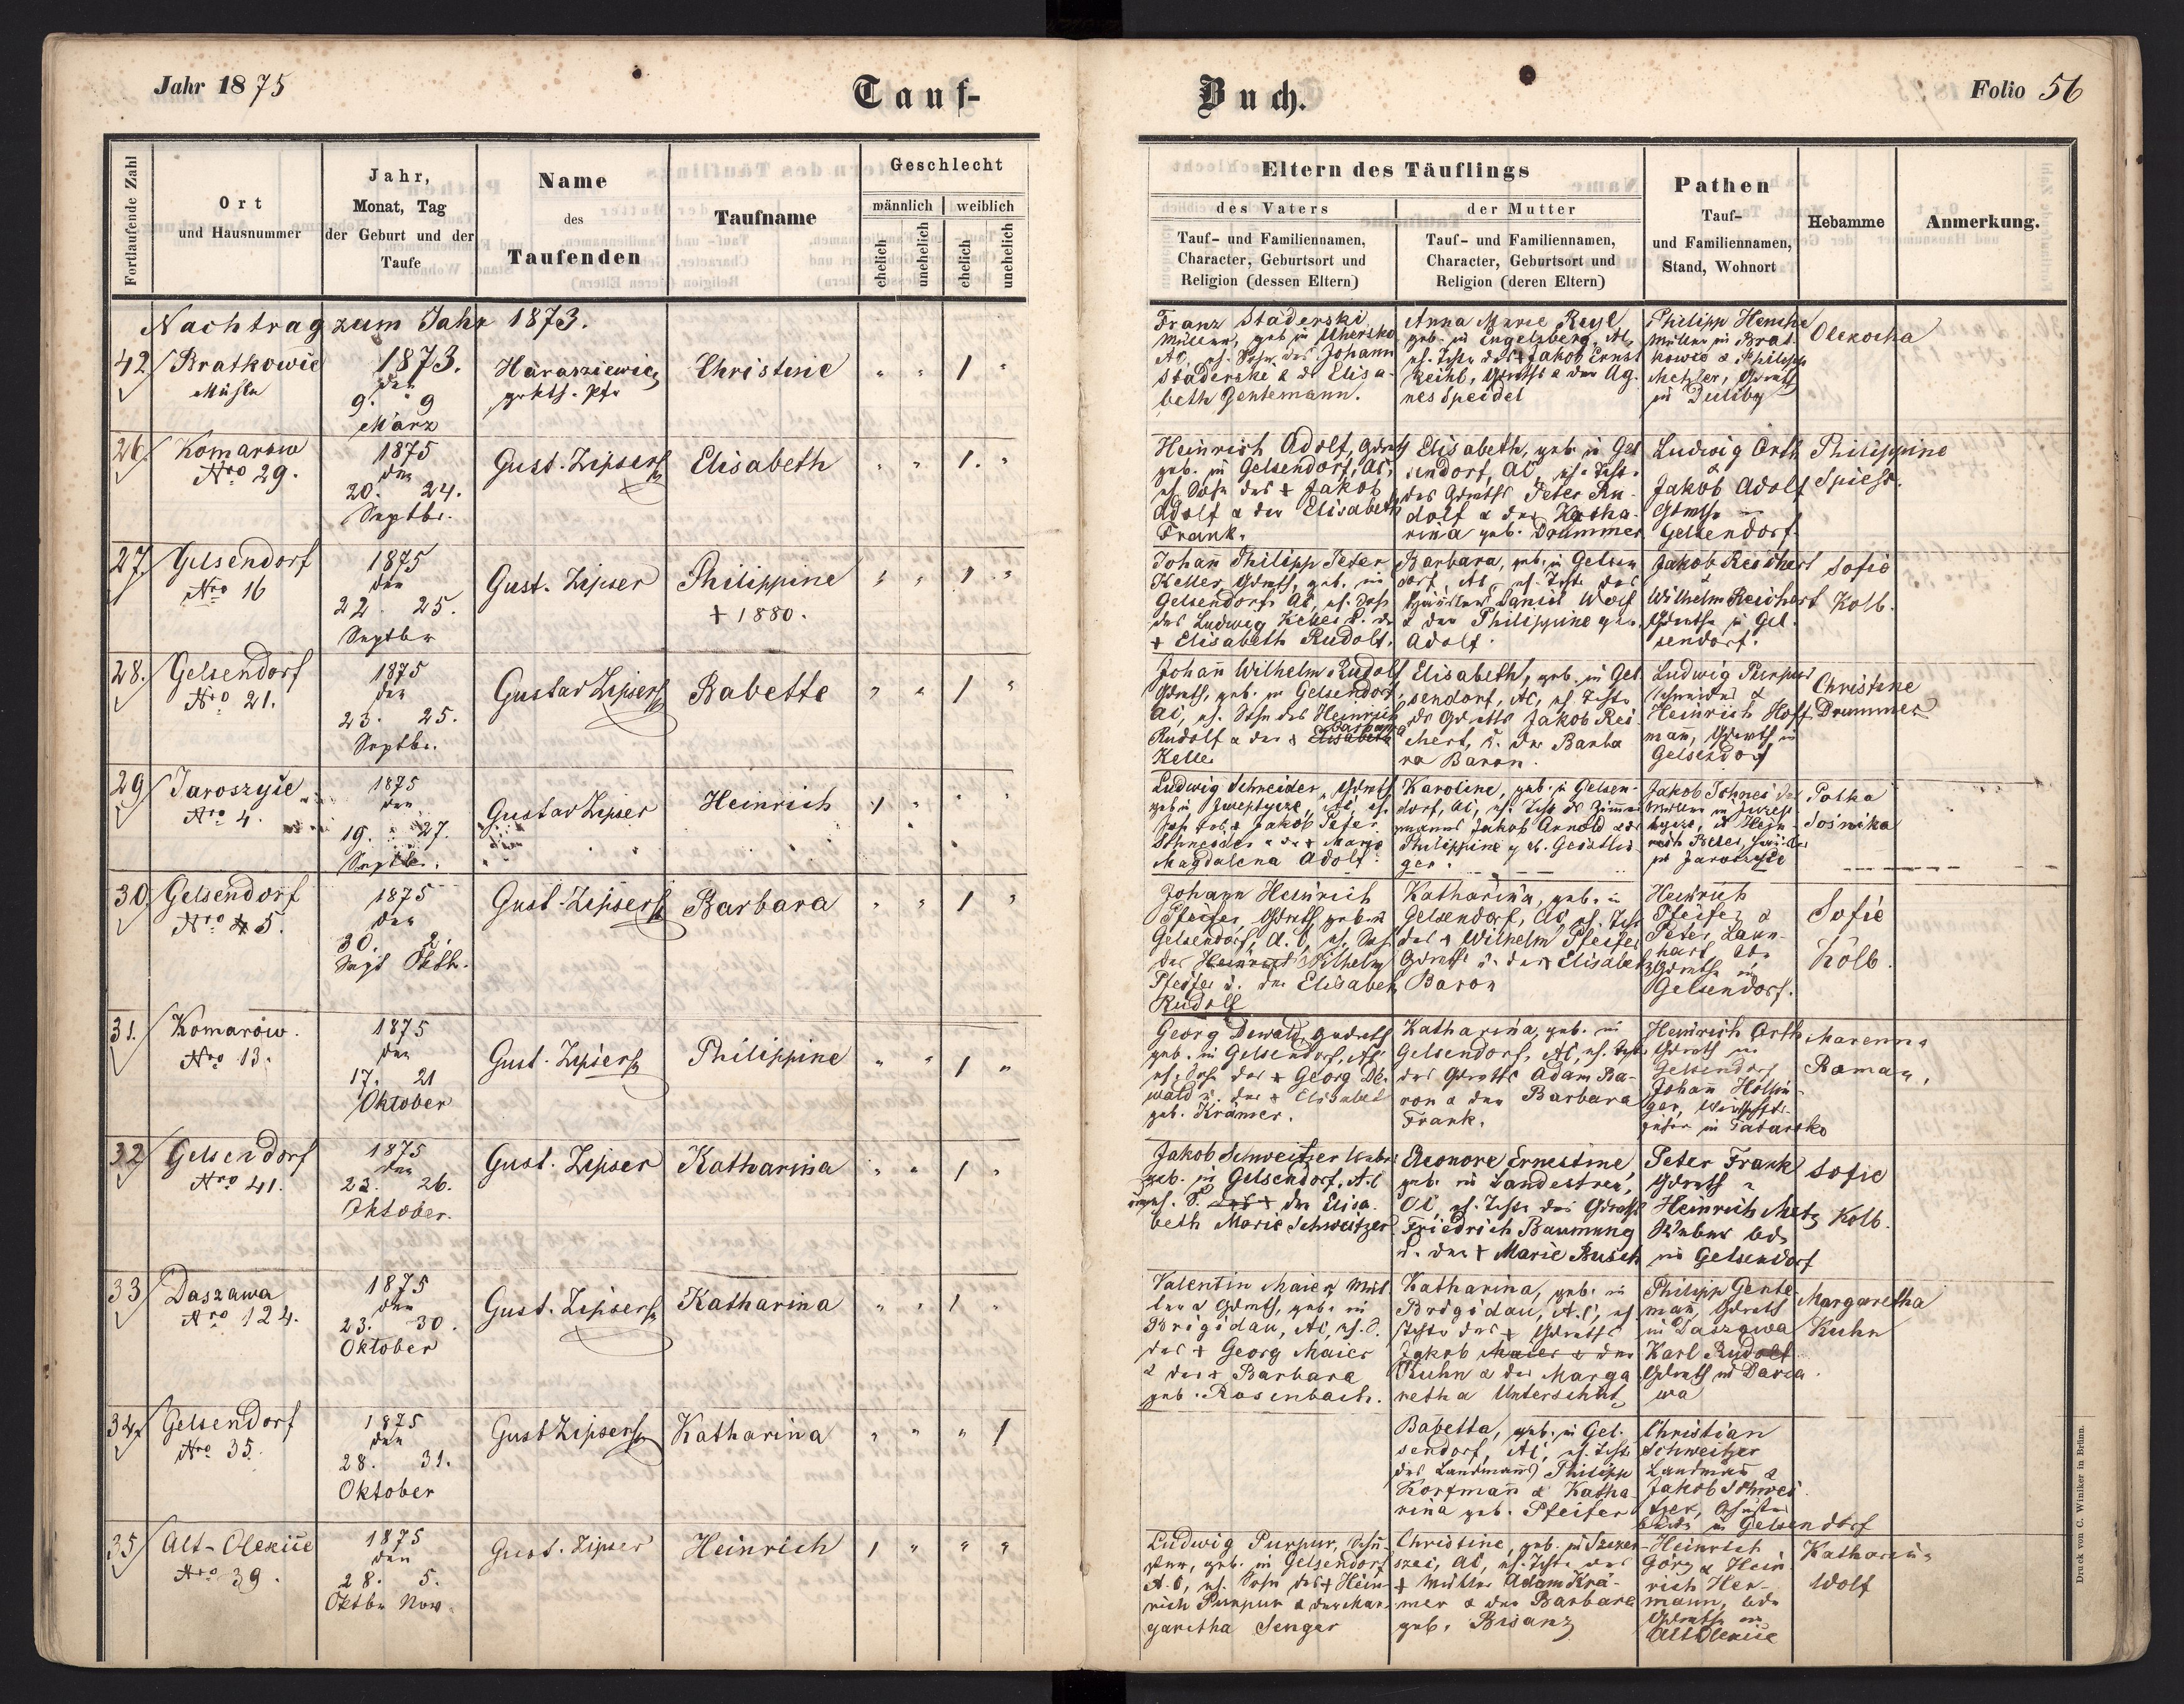 Jahr 1875
Tauf-
Buch.
Folio 56
Fortlaufende Zahl
Ort
und Hausnummer
Jahr,
Monat, Tag
der Geburt und der
Taufe
Name
des
Taufenden
Taufname
Geschlecht
männlich weiblich
ehelich unehelich ehelich unehelich
Eltern des Täuflings
des Vaters
Tauf- und Familiennamen,
Character, Geburtsort und
Religion (dessen Eltern)
der Mutter
Tauf- und Familiennamen,
Character, Geburtsort und
Religion (deren Eltern)
Pathen
Tauf-
und Familiennamen,
Stand, Wohnort
Hebamme
Anmerkung.
Nachtrag zum Jahr 1873.
42
Bratkowie
Mühle
1873.
den
9. 9
März
Christine
" " 1 "
Franz Staderski
Müller, geb. in
AC, eh. Sohn des Johann
Staderski & d. Elisa-
beth Gentemann.
Anna Marie
geb. in Engelsberg, AC,
eh. Tcht. des + Jakob Ernst
& der Ag-
nes Speidel
Philipp
Müller in Brat-
kowie & Philipp
Metzler, Grdwth
in Duliby
26.
Komarow
Nro 29.
1875
den
20. 24.
Septbr.
Gust. Zipser
Elisabeth
" " 1. "
Heinrich Adolf, Grdwth
geb. in Gelsendorf, AC,
eh. Sohn des + Jakob
Adolf & der Elisabeth
Frank.
Elisabeth, geb. in Gel-
sendorf, AC, eh. Tcht.
des Grdwths Peter Ru-
dolf & der Katha-
rina geb. Drummer
Ludwig Orth
&
Jakob Adolf
Gelsendorf.
Philippine
Spiess.
27.
Gelsendorf
Nro 16
1875
den
22. 25.
Septbr
Gust. Zipser
Philippine
+ 1880.
" " 1. "
Johann Philipp Peter
Keller Grdwth, geb. in
Gelsendorf, AC, eh. Sohn
des Ludwig Keller & der
+ Elisabeth Rudolf.
Barbara, geb. in Gelsen-
dorf, AC, eh. Tcht. des
Häuslers Daniel Wolf
& der Philippine geb.
Adolf.
Jakob Reichert
&
Wilhelm Reichert
Grdwth in Gel-
sendorf.
Sofie
Kolb.
28.
Gelsendorf
Nro 21.
1875
den
23. 25.
Septbr.
Gustav Zipser
Babette
" " 1 "
Johann Wilhelm Rudolf
Grdwth, geb. in Gelsendorf,
AC, eh. Sohn des Heinrich
Barbara
Rudolf & der + Elisabeth
Keller
Elisabeth, geb. in Gel-
sendorf, AC, eh. Tcht.
des Grdwths Jakob Rei-
chert, u. der Barba-
ra Baron.
Ludwig Purpur
Schneider &
Heinrich Hoff-
mann, Grdwth in
Gelsendorf
Christine
Drummer
29
Jaroszyce
Nro 4.
1875
den
19. 27.
Septbr.
Gustav Zipser
Heinrich
1 " " "
Ludwig Schneider, Grdwth
Sohn des + Jakob Peter
Schneider & der + Marie
Magdalena Adolf.
Karoline, geb. in Gelsen-
dorf, AC, eh. Tcht. des Zimmer-
manns Jakob Arnold & der
Philippine geb.
ger.
in Jaroszyce
30.
Gelsendorf
Nro 5.
1875
den
30. 2.
Sept Oktb.
Gust. Zipser
Barbara
" " 1 "
Johann Heinrich
Pfeifer, Grdwth, geb. in
Gelsendorf, A.C, eh. Sohn
des Heinrich Wilhelm
Pfeifer u. der Elisabeth
Rudolf
Katharina, geb. in
Gelsendorf, AC, eh. Tcht.
des + Wilhelm Pfeifer
Grdwth u. der + Elisabeth
Baron
Heinrich
Pfeifer &
Peter Laun-
hart
Grdwthe in
Gelsendorf.
Sofie
Kolb.
31.
Komarow.
Nro 13.
1875
den
17. 21
Oktober
Gust. Zipser
Philippine
" " 1 "
Georg Dewald, Grdwth
geb. in Gelsendorf, AC,
eh. Sohn des + Georg De-
wald u. der + Elisabet
geb. Krämer.
Katharina, geb. in
Gelsendorf, AC, eh. Tcht.
des Grdwths Adam Ba-
ron & der Barbara
Frank.
Heinrich Orth
Grdwth in
Gelsendorf
Johann
in Tatarsko
Marenna
Roman.
32
Gelsendorf
Nro 41.
1875
den
23. 26.
Oktober.
Gust. Zipser
Katharina
" " 1 "
Jakob Schweitzer Weber
geb. in Gelsendorf, A.C
uneh. S. der Elisa-
beth Marie Schweitzer
Eleonore Ernestine,
geb. in Landestreu,
AC, eh. Tcht. des Grdwths
Friedrich Baumung
u. der + Marie Busch
Peter Frank
Grdwth &
Heinrich Metz
Weber bde
in Gelsendorf
Sofie
Kolb.
33
Daszawa
Nro 124.
1875
den
23. 30.
Oktober
Gust. Zipser
Katharina
" " 1 "
Valentin Maier, Mül-
ler & Grdwth, geb. in
Brigidau, AC, eh. S.
des + Georg Maier
& der + Barbara
geb. Rosenbach.
Katharina, geb. in
Brigidau, A.C, eh.
Tcht. des + Grdwths
Jakob Maier & der
Kuhn & der Marga-
retha Unterschütz
Philipp Gente-
mann, Grdwth
in Daszawa
Karl Rudolf
Grdwth in Dasza-
wa
Margaretha
Kuhn
34
Gelsendorf
Nro 35.
1875
den
28. 31.
Oktober
Gust Zipser
Katharina
" " " 1
Babetta, geb. in Gel-
sendorf, AC, eh. Tcht.
des Landmanns Philipp
Korfmann & Katha-
rina geb. Pfeifer
Christian
Schweitzer
Landmann &
Jakob Schwei-
tzer,
beide in Gelsendorf
35
Alt-Olexice
Nro 39.
1875
den
28. 5.
Oktbr Nov.
Gust. Zipser
Heinrich
1 " " "
Ludwig Purpur, Schu-
ster, geb. in Gelsendorf
A.C, eh. Sohn des + Hein-
rich Purpur & der Mar-
garetha Senger
Christine, geb. in
AC, eh. Tcht. des
+ Müller Adam Krä-
mer & der Barbara
geb. Bisanz
Heinrich
Görz & Hein-
rich Her-
mann, bde
Grdwthe in
Alt Olexice
Katharina
Wolf
Druck von C. Winiker in Brünn.